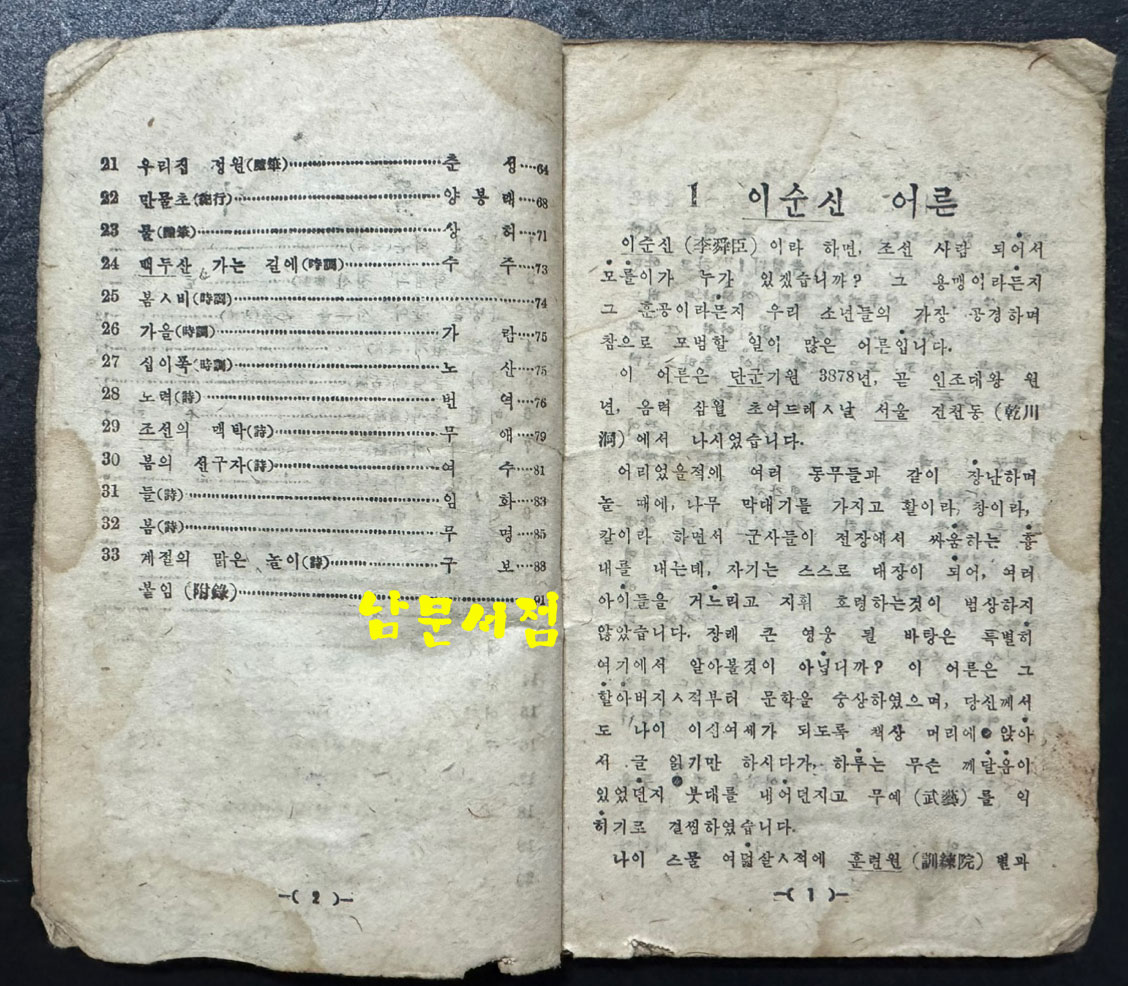 21 우리집 정원(隨筆) 춘 성 64
22 만물초(紀行) 양 봉 래 68
23 물(隨筆) 상 허 71
24 백두산 가는 길에(時調) 수 주 73
25 봄ㅅ비(時調) 74
26 가을(時調) 가 람 75
27 십이폭(時調) 노 산 75
28 노력(詩) 번 역 76
29 조선의 맥박(詩) 무 애 79
30 봄의 선구자(詩) 여 수 81
31 들(詩) 임 화 83
32 봄(詩) 무 명 85
33 계절의 맑은 놀이(詩) 구 보 88
붙임 (附錄) 91
남문서점
-( 2 )-
1 이순신 어른
이순신 (李舜臣) 이라 하면, 조선 사람 되어서
모를이가 누가 있겠습니까? 그 용맹이라든지
그 훈공이라든지 우리 소년들의 가장 공경하며
참으로 모범할 일이 많은 어른입니다.
이 어른은 단군기원 3878년, 곧 인조대왕 원
년, 음력 삼월 초여드레ㅅ날 서울 건천동 (乾川
洞) 에서 나시었습니다.
어리었을적에 여러 동무들과 같이 장난하며
놀 때에, 나무 막대기를 가지고 활이라, 창이라,
칼이라 하면서 군사들이 전장에서 싸움하는 흉
내를 내는데, 자기는 스스로 대장이 되어, 여러
아이들을 거느리고 지휘 호령하는것이 범상하지
않았습니다. 장래 큰 영웅 될 바탕은 특별히
여기에서 알아볼것이 아닙니까? 이 어른은 그
할아버지ㅅ적부터 문학을 숭상하였으며, 당신께서
도 나이 이십여세가 되도록 책상 머리에 앉아
서 글 읽기만 하시다가, 하루는 무슨 깨달음이
있었던지 붓대를 내어던지고 무예 (武藝) 를 익
히기로 결심하였습니다.
나이 스물 여덟살ㅅ적에 훈련원 (訓練院) 별과
-( 1 )-